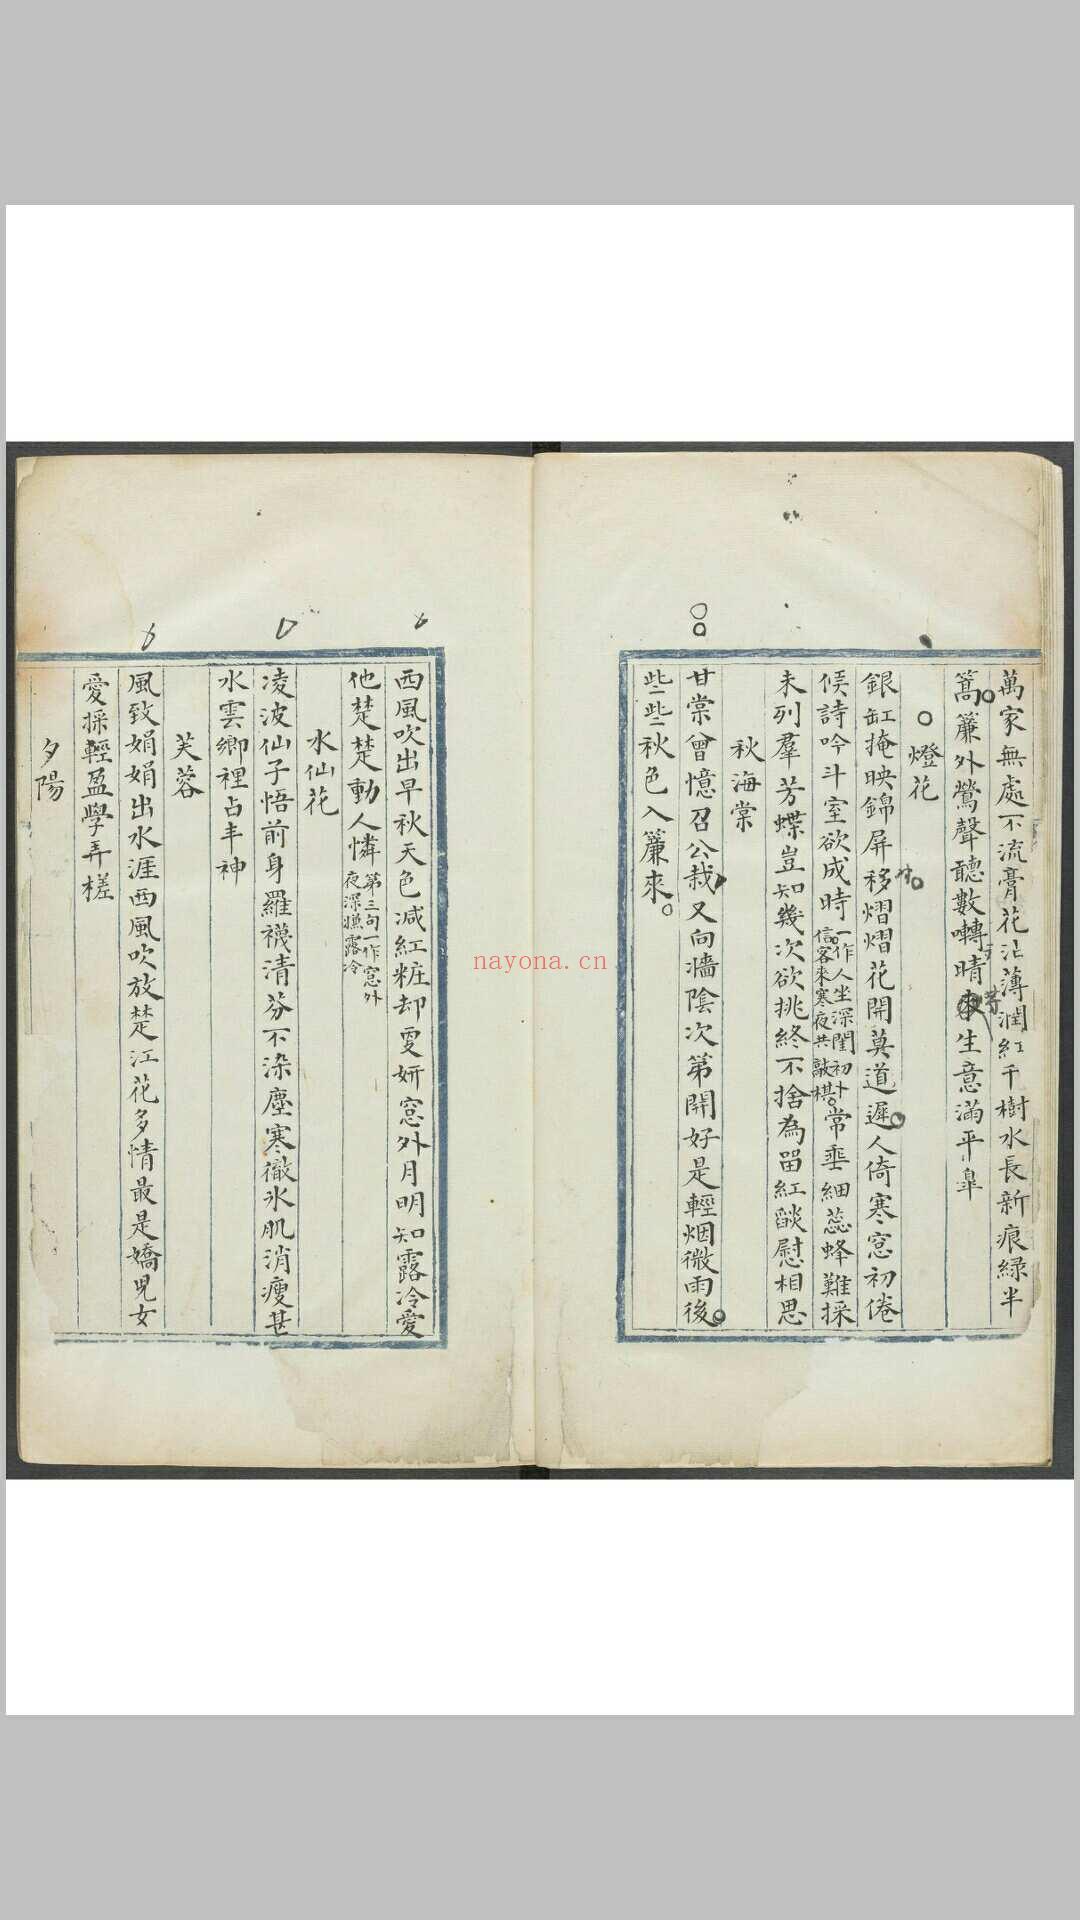 萬家無處不流膏花沾薄潤紅千樹水長新痕緑半
篙簾外鶯聲聽數囀晴來生意滿平皐
燈花
銀缸掩映錦屏移熠熠花開莫道遲人倚寒窓初倦
候詩吟斗室欲成時一作人坐深閨初卜
信客來寒夜共敲棋常垂細蕊蜂難採
未列羣芳蝶豈知幾次欲挑終不捨為留紅燄慰相思
秋海棠
甘棠曾憶召公栽又向牆陰次第開好是輕烟微雨後
些些秋色入簾來
西風吹出早秋天色减紅粧却更妍窓外月明知露冷愛
他楚楚動人憐第三句一作窓外
夜深嫌露冷
水仙花
凌波仙子悟前身羅襪清芬不染塵寒徹氷肌消瘦甚
水雲鄉裡占丰神
芙蓉
風致娟娟出水涯西風吹放楚江花多情最是嬌兒女
愛採輕盈學弄槎
夕陽
nayona.cn